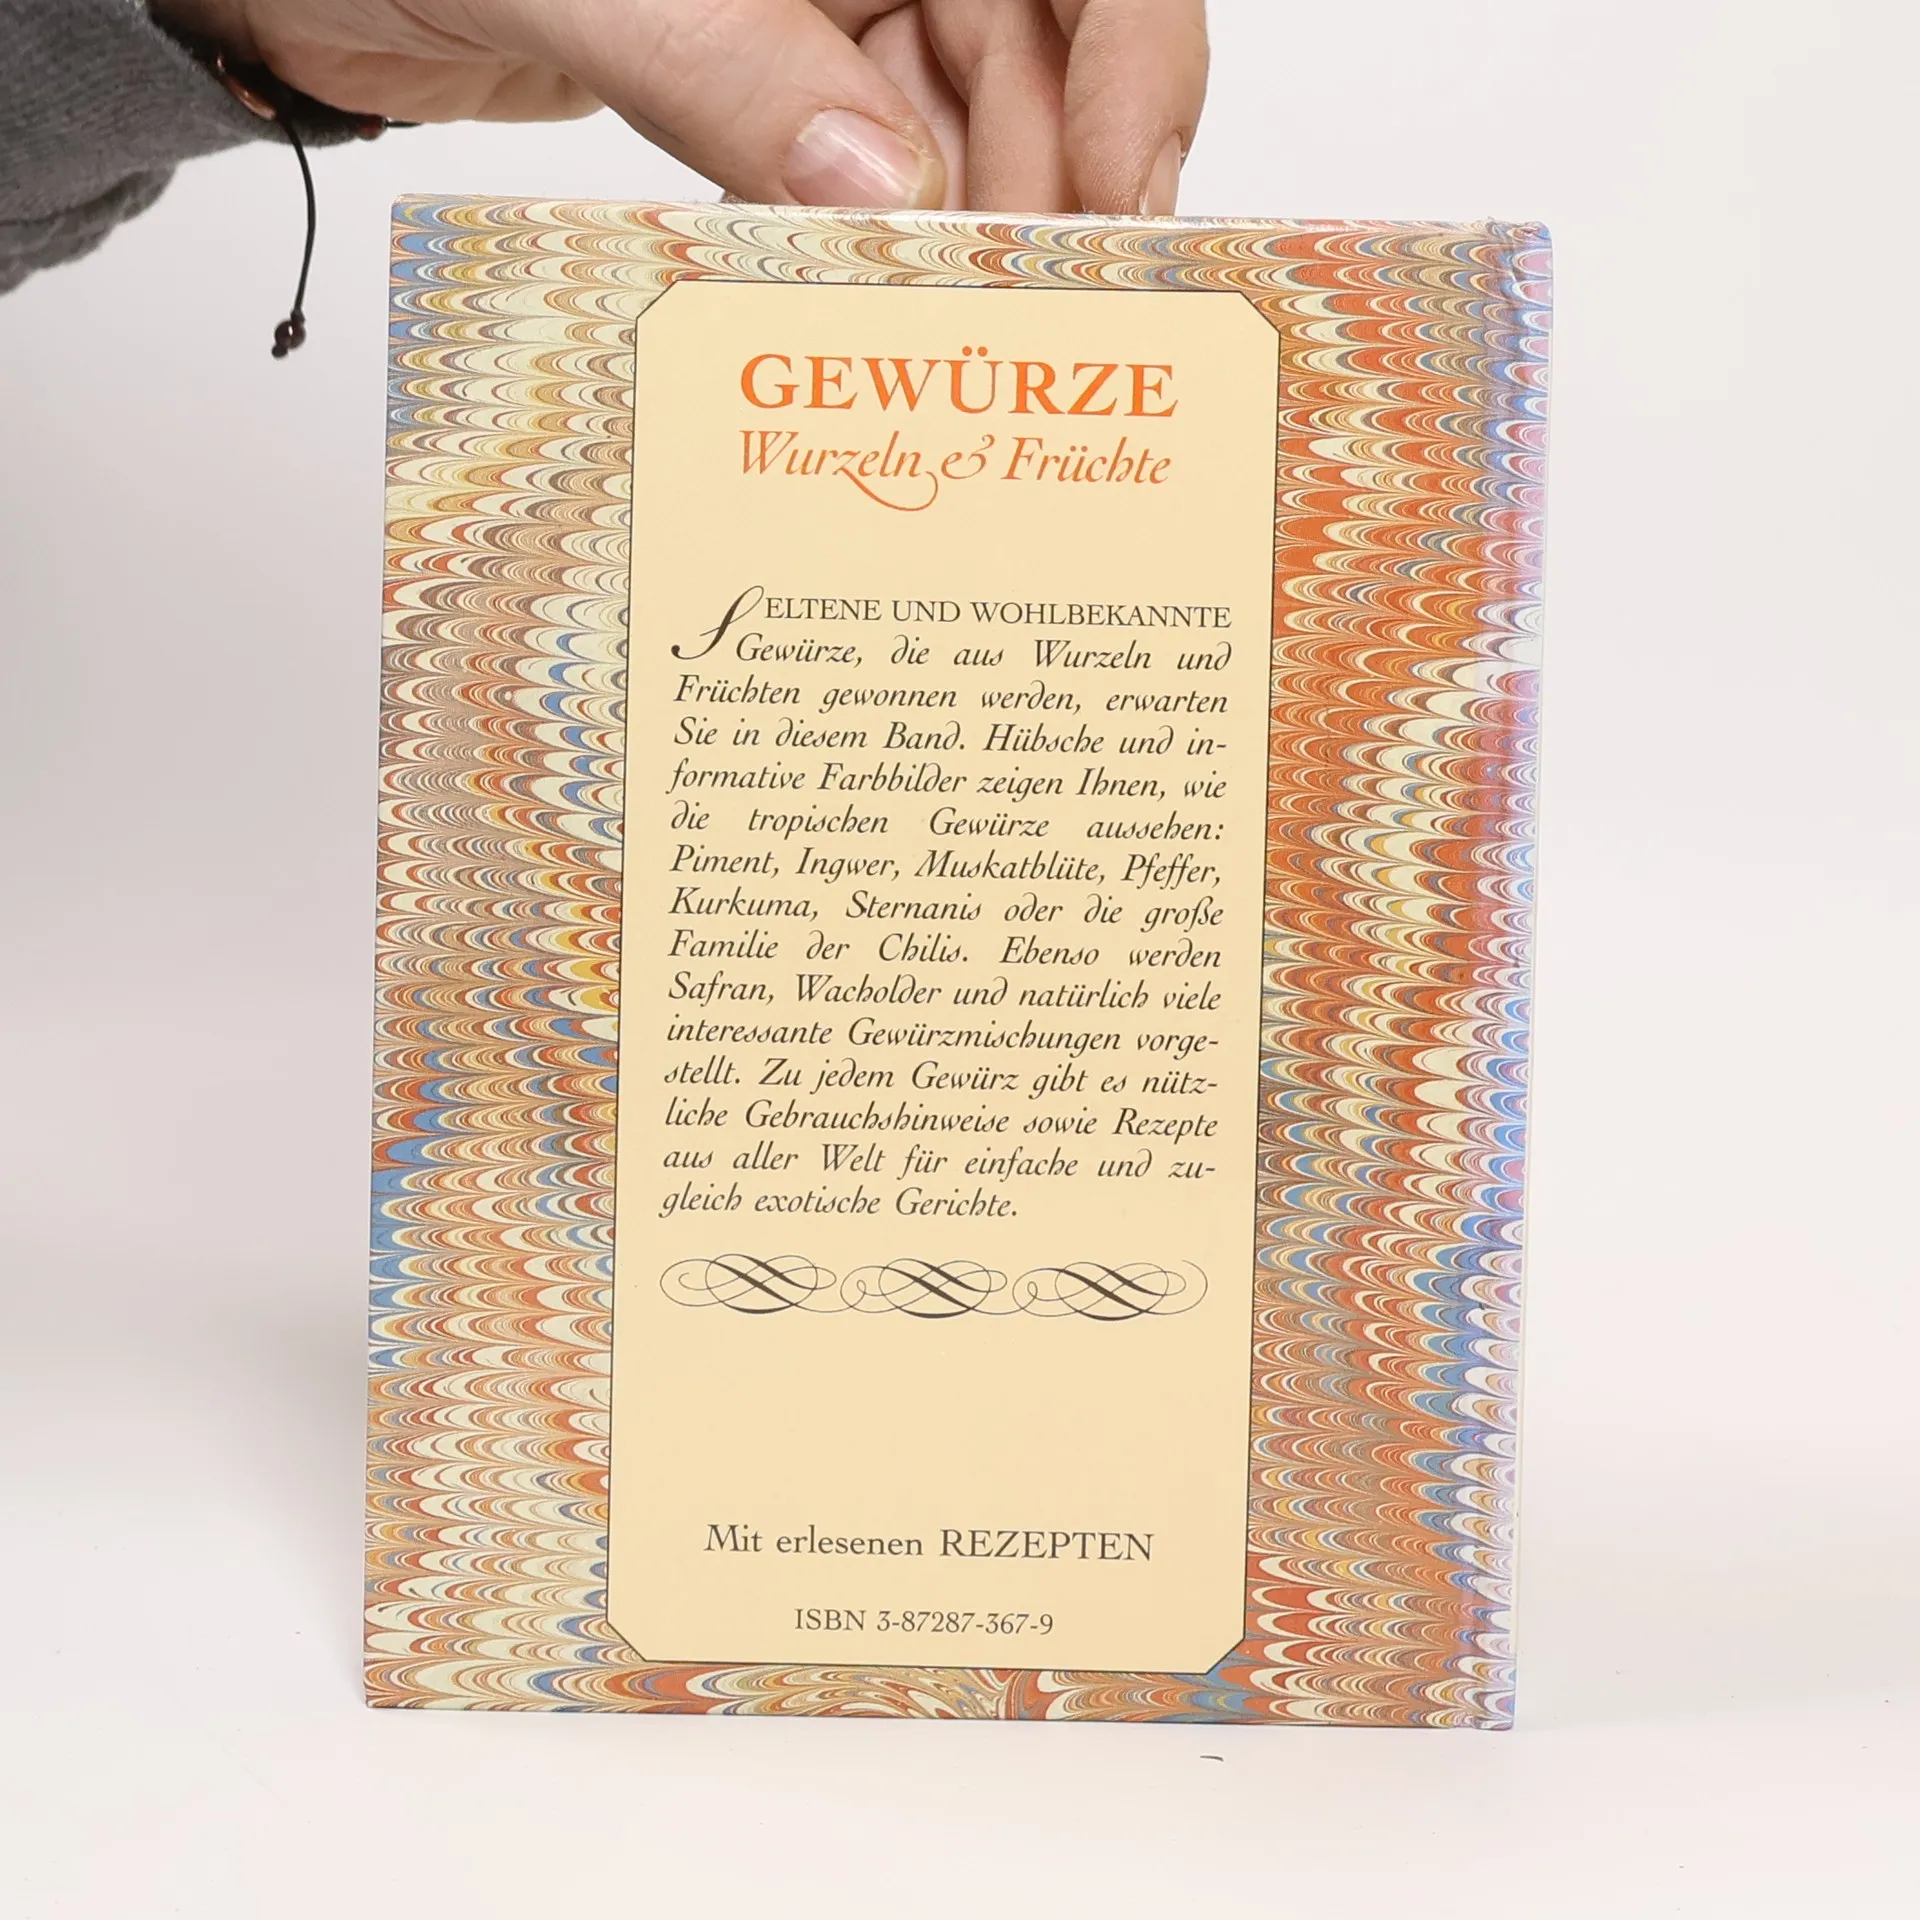 GEWÜRZE
Wurzeln & Früchte
SELTENE UND WOHLBEKANNTE
Gewürze, die aus Wurzeln und
Früchten gewonnen werden, erwarten
Sie in diesem Band. Hübsche und in-
formative Farbbilder zeigen Ihnen, wie
die tropischen Gewürze aussehen:
Piment, Ingwer, Muskatblüte, Pfeffer,
Kurkuma, Sternanis oder die große
Familie der Chilis. Ebenso werden
Safran, Wacholder und natürlich viele
interessante Gewürzmischungen vorge-
stellt. Zu jedem Gewürz gibt es nütz-
liche Gebrauchshinweise sowie Rezepte
aus aller Welt für einfache und zu-
gleich exotische Gerichte.
Mit erlesenen REZEPTEN
ISBN 3-87287-367-9